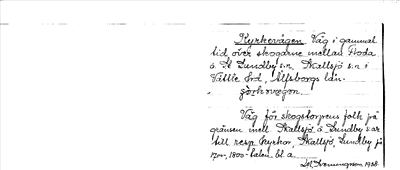 Kyrkevägen. Väg i gammal
tid över skogarne mellan Hoda
o. St Lundby s:n, Skallsjö s:n i
Vättle hd, Älfsborgs län.
Väg för skogstorpens folk på
gränsen mell. Skallsjö o. Lundby s:ar
till resp. kyrkor, Skallsjö, Lundby på
1700-, 1800-talen, bl. a.
1928.